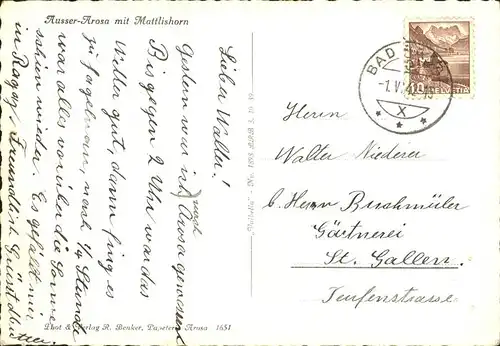 Ausser-Arosa mit Mattlishorn
Lieber Walter!
Gestern war ich nach
Arosa gewandert
Bis gegen 2 Uhr war das
Wetter gut, dann fing es
zu hageln an, nach 1/4 Stunde
war alles vorüber die Sonne
schien wieder. Es gefällt mir
in Ragaz. Freundlich Grüsst
Phot & Verlag R. Benker, Papeterie Arosa 1651
BAD
-1.V
X
10
HELVETIA
Herrn
Walter Niederer
b. Herrn Buchmüller
Gärtnerei
St. Gallen
Teufenstrasse